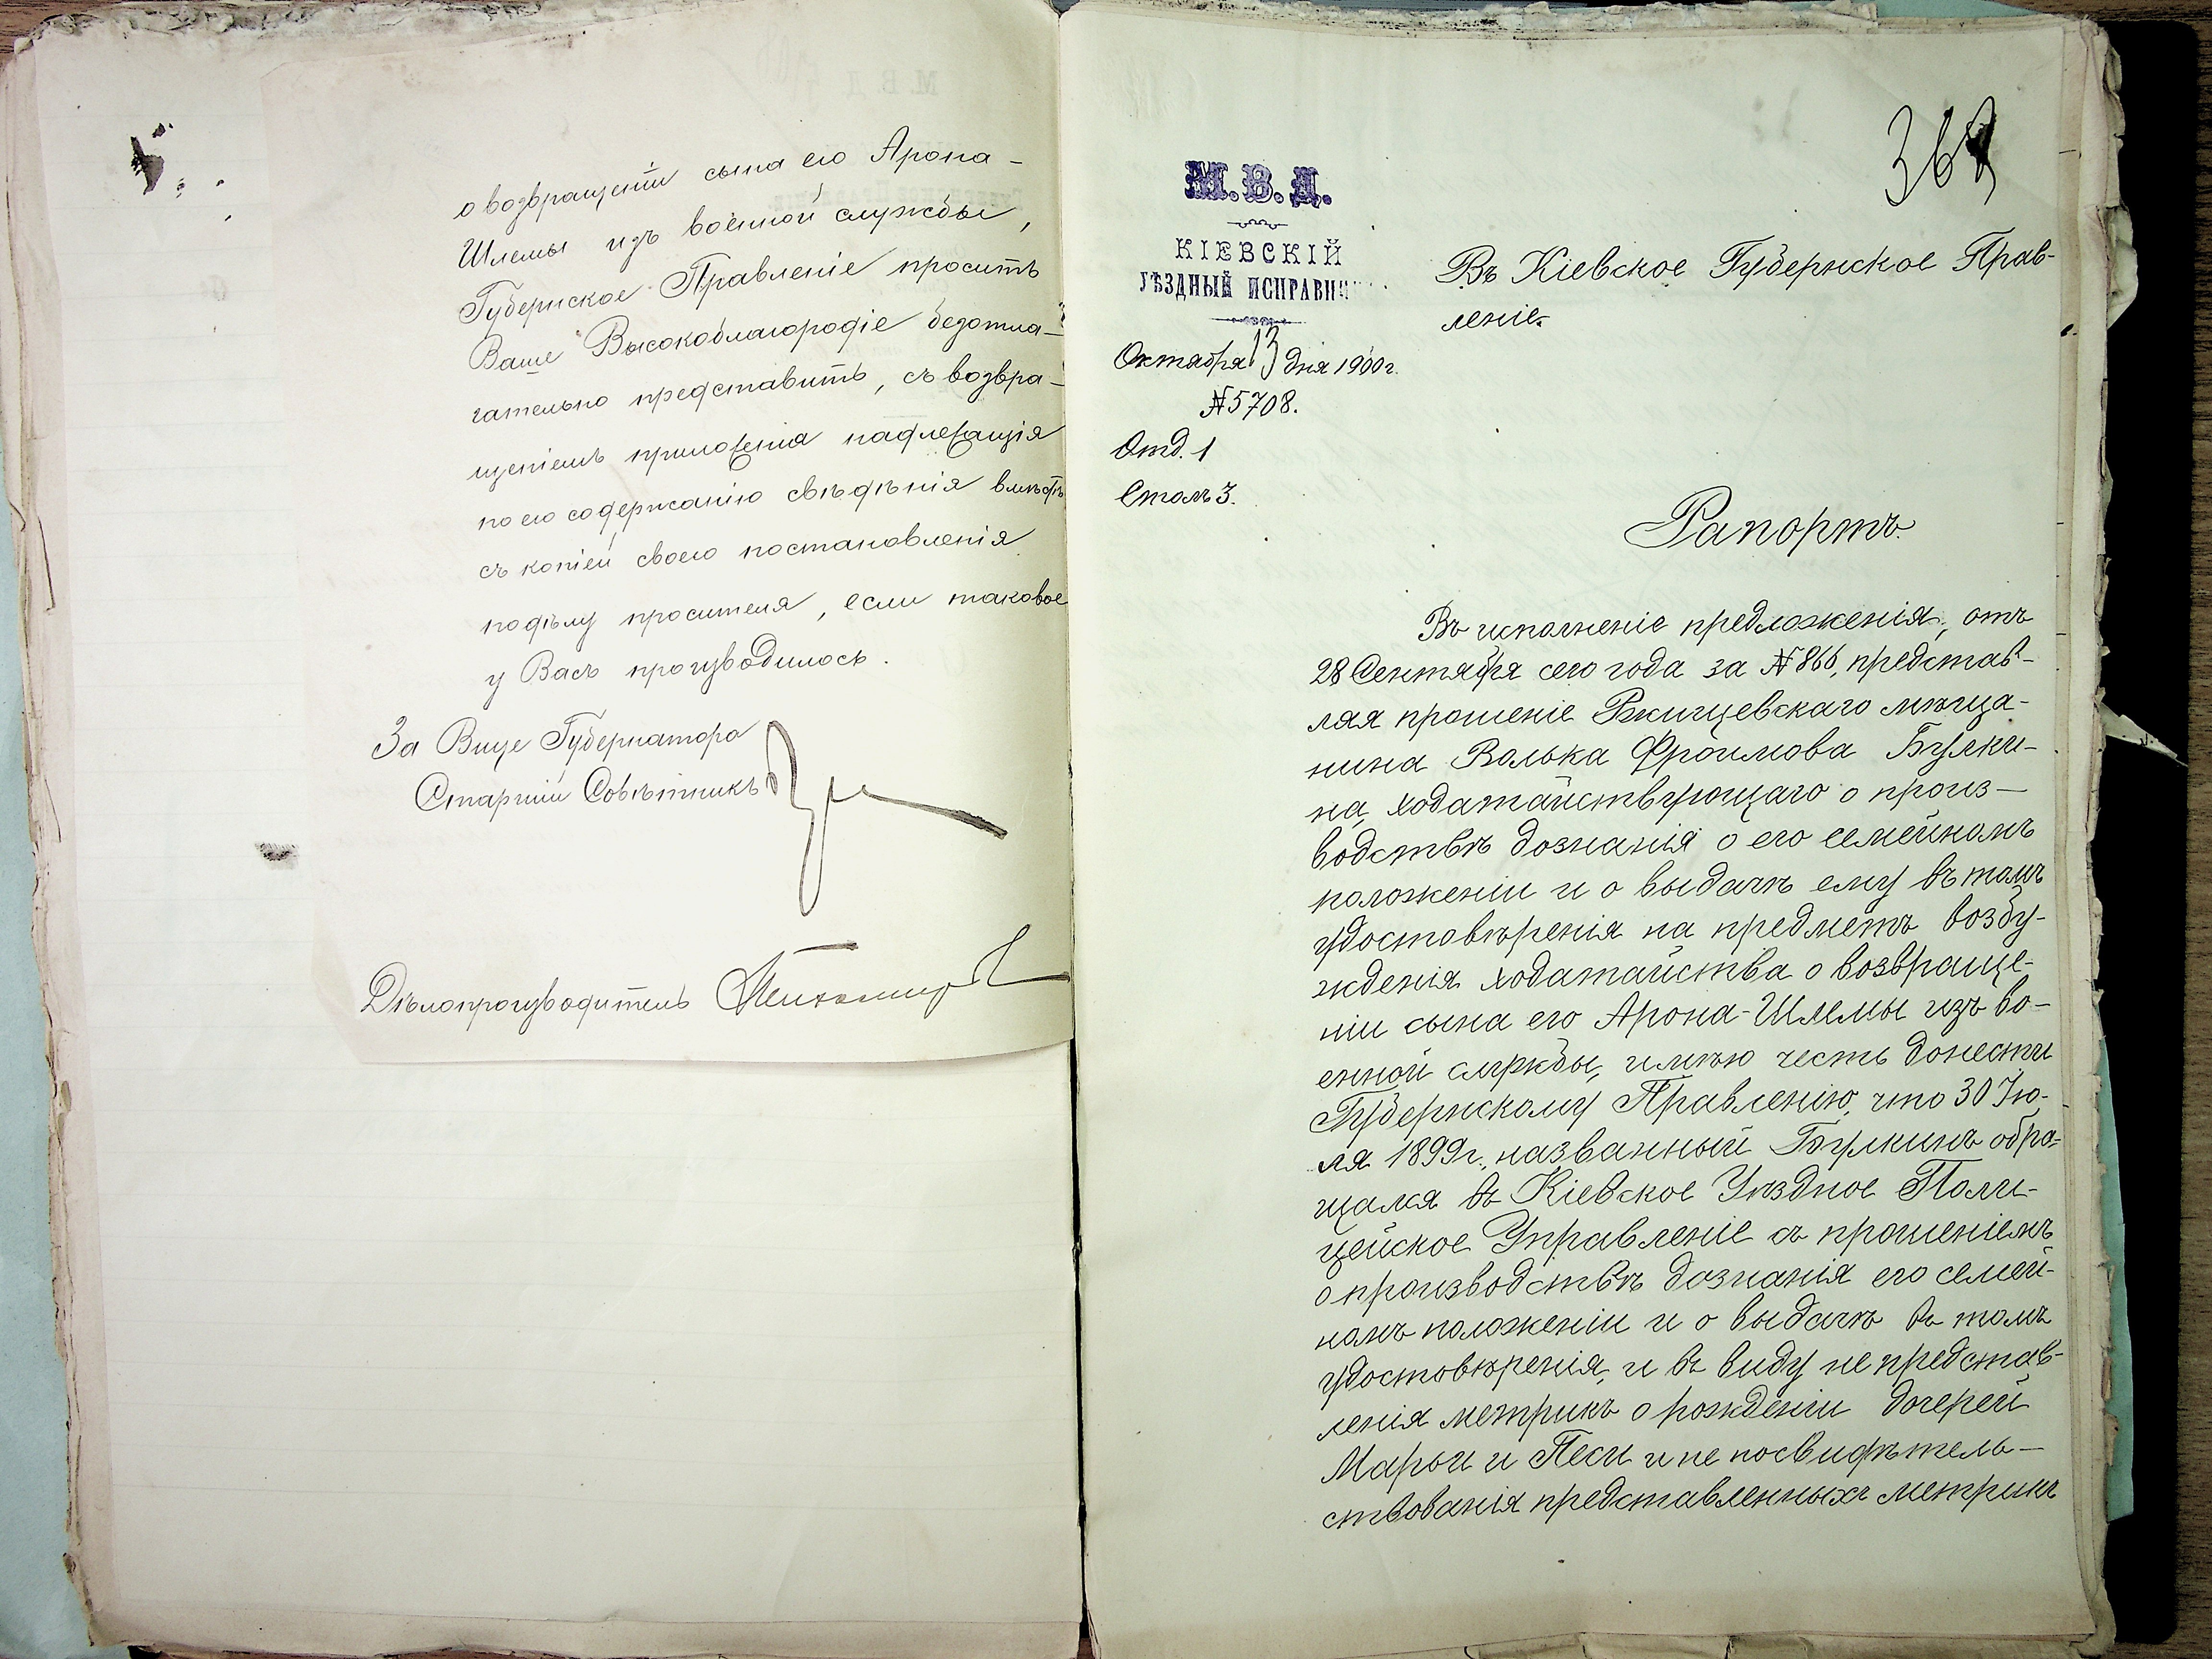 о возвращеніи сына его Арона-
Шлемы изъ военной службы,
Губернское Правленіе проситъ
Ваше Высокоблагородіе безотла-
гательно представить, съ возвра-
щеніемъ приложенія надлежащія
по его содержанію свѣдѣнія вмѣстѣ
съ копіей своего постановленія
по дѣлу просителя, если таковое
у Васъ производилось.
За Вице Губернатора
Старшій Совѣтникъ
Дѣлопроизводитель
М.В.Д.
КІЕВСКІЙ
УѢЗДНЫЙ ИСПРАВНИ
Октября 13 дня 1900 г.
№ 5708.
Отд. 1
Столъ 3.
Въ Кіевское Губернское Прав-
леніе.
Рапортъ.
Въ исполненіе предложенія, отъ
28 Сентября сего года за № 866, представ-
ляя прошеніе Ржищевскаго мѣща-
нина Волька Фроимова Булки-
на, ходатайствующаго о произ-
водствѣ дознанія о его семейномъ
положеніи и о выдачѣ ему въ томъ
удостовѣренія на предметъ возбу-
жденія ходатайства о возвраще-
ніи сына его Арона-Шлемы изъ во-
енной службы, имѣю честь донести
Губернскому Правленію, что 30 Ію-
ля 1899 г., названный Булкинъ обра-
щался въ Кіевское Уѣздное Поли-
цейское Управленіе съ прошеніемъ
о производствѣ дознанія его семей-
номъ положеніи и о выдачѣ въ томъ
удостовѣренія, и въ виду не представ-
ленія метрикъ о рожденіи дочерей
Марьи и Песи и не посвидѣтель-
ствованія представленныхъ метрикъ